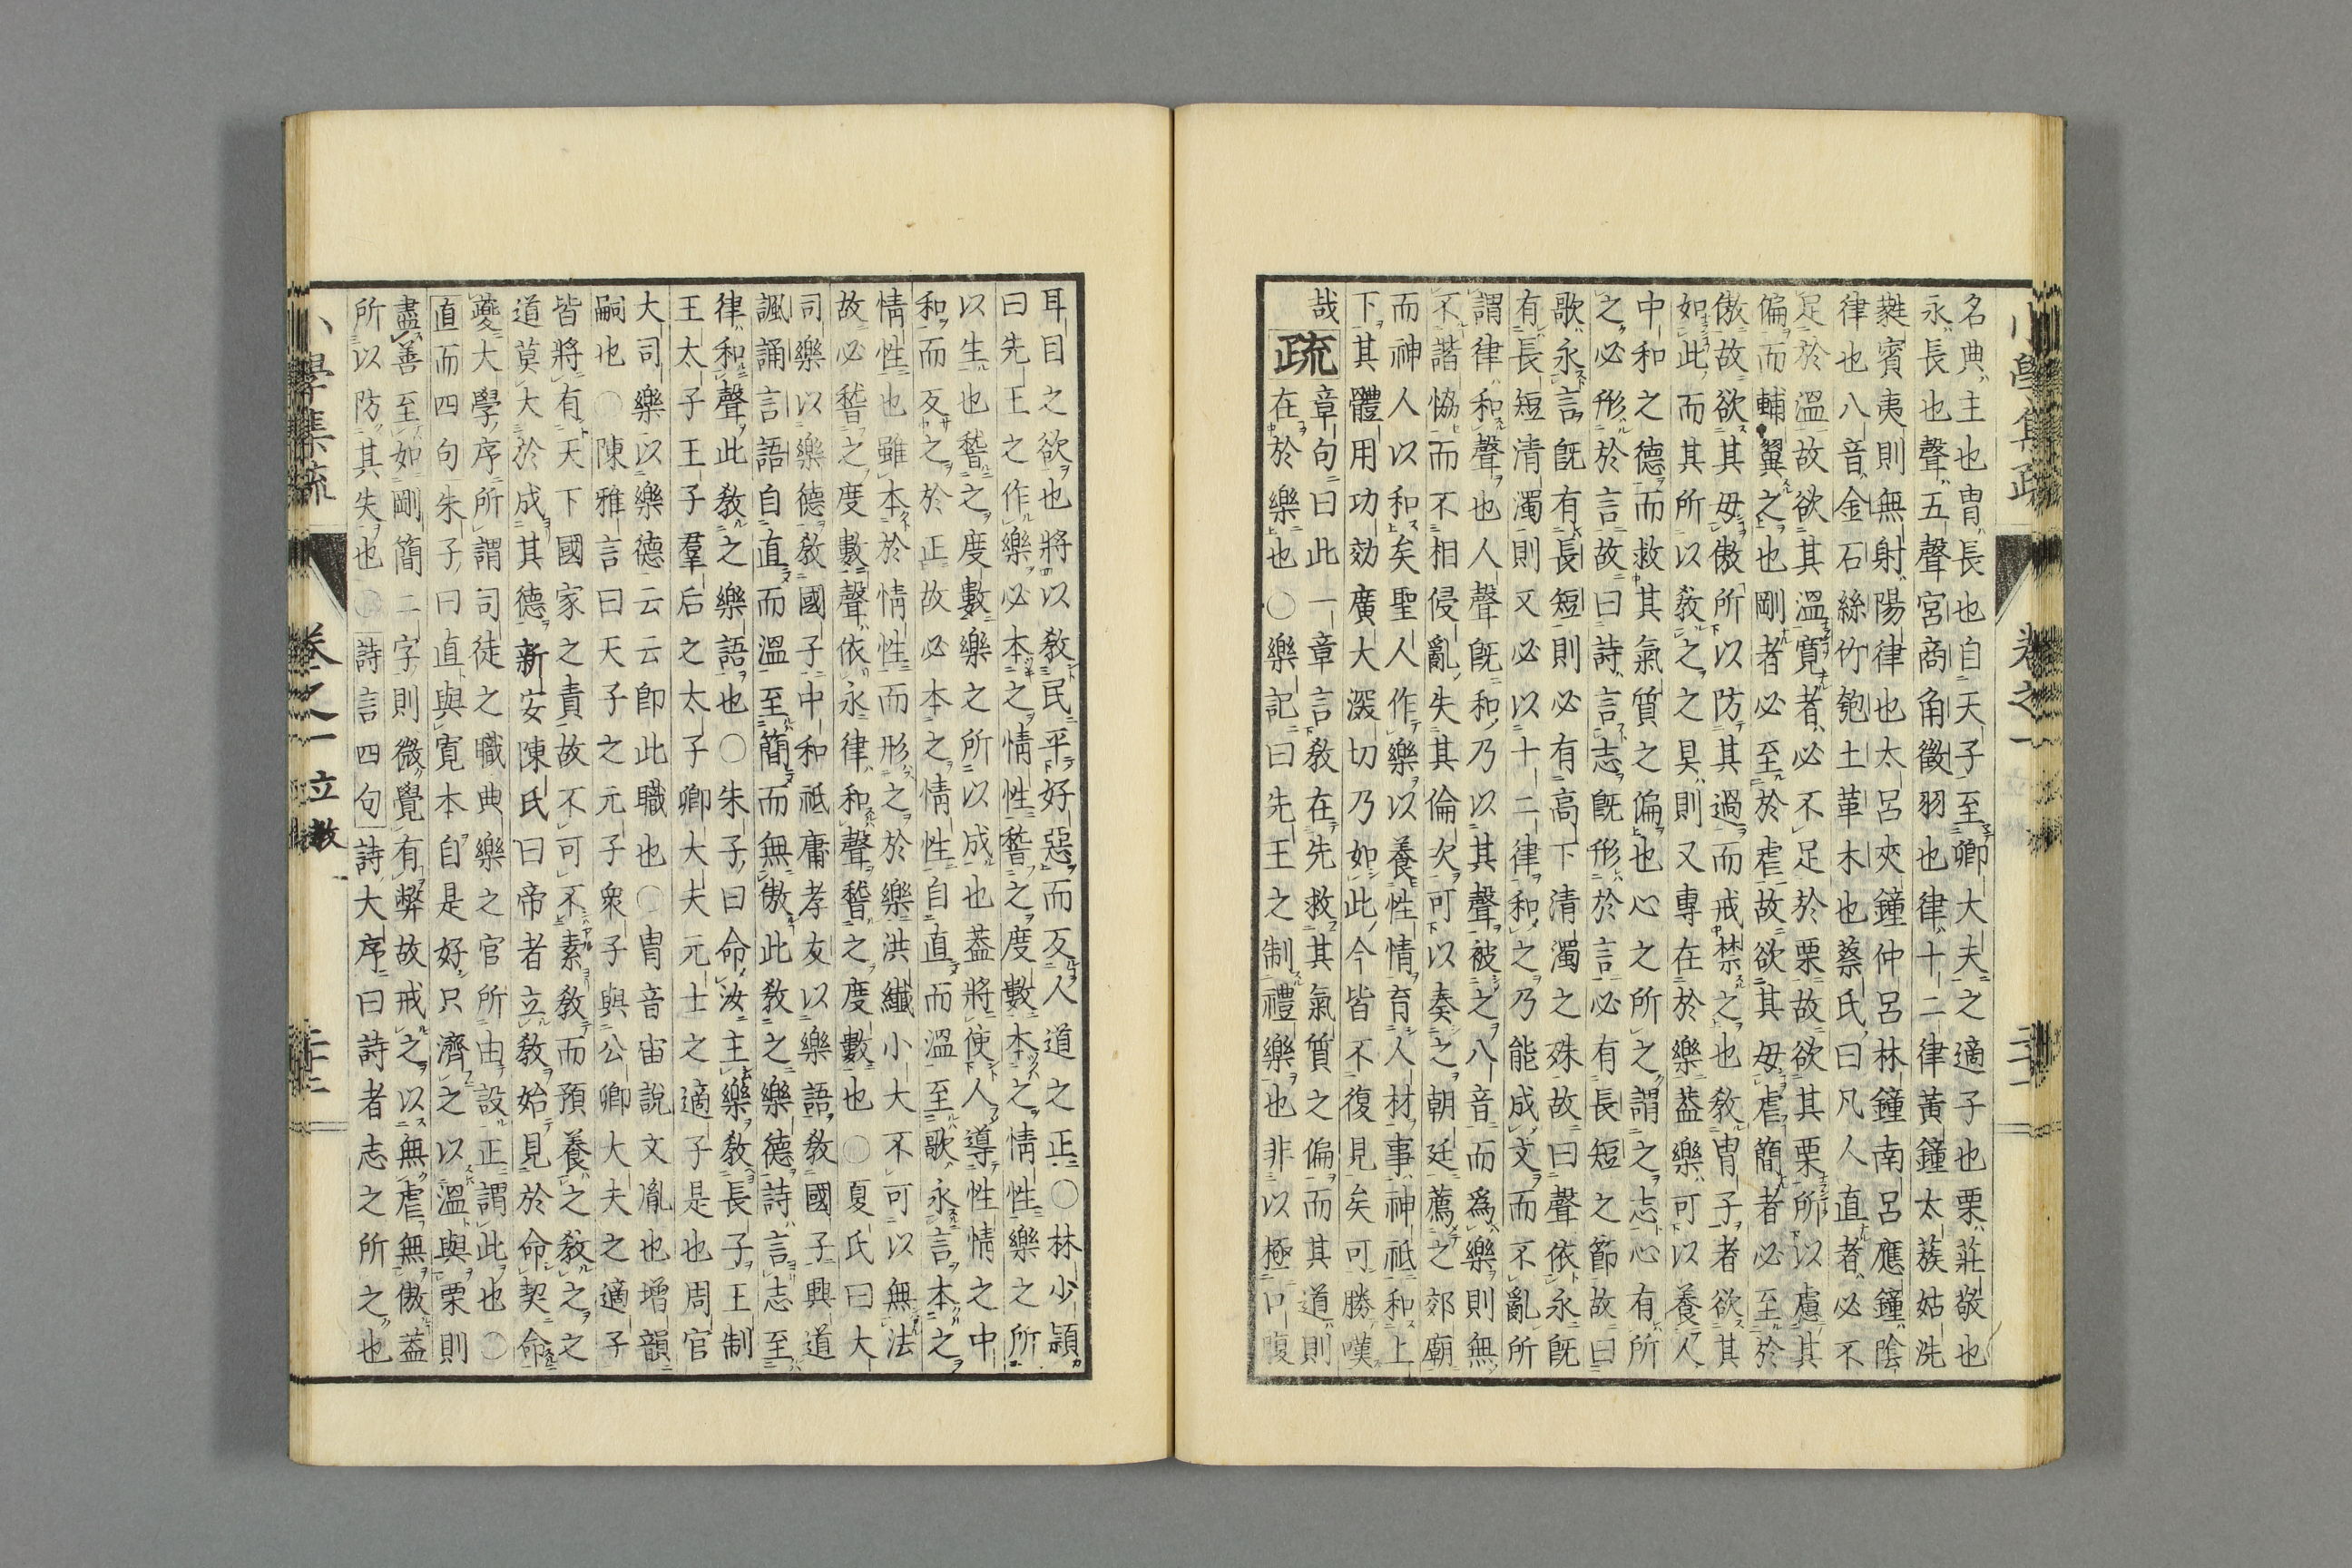 名典主也冑長也自天子至卿大夫之適子也栗莊敬也
永長也聲五聲宮商角徵羽也律十二律黃鐘太蔟姑洗
蕤賓夷則無射陽律也太呂夾鐘仲呂林鐘南呂應鐘陰
律也八音金石絲竹匏土革木也蔡氏曰凡人直者必不
足於溫故欲其溫寬者必不足於栗故欲其栗所以慮其
偏而輔翼之也剛者必至於虐故欲其毋虐簡者必至於
傲故欲其毋傲所以防其過而戒禁之也敎冑子者欲其
如此而其所以敎之之具則又專在於樂蓋樂可以養人
中和之德而救其氣質之偏也心之所之謂之志心有所
之必形於言故曰詩言志旣形於言必有長短之節故曰
歌永言旣有長短則必有高下淸濁之殊故曰聲依永旣
有長短清濁則又必以十二律和之乃能成文而不亂所
謂律和聲也人聲旣和乃以其聲被之八音而爲樂則無
不諧恊而不相侵亂失其倫次可以奏之朝廷薦之郊廟
而神人以和矣聖人作樂以養性情育人材事神祗和上
下其體用功効廣大深切乃如此今皆不復見矣可勝嘆
哉 疏 章句曰此一章言敎在先救其氣質之偏而其道則
在於樂也〇樂記曰先王之制禮樂也非以極口腹
小學集疏 卷之一
耳目之欲也將以敎民平好惡而反人道之正〇林少頴
曰先王之作樂必本之情性稽之度數本之情性樂之所
以生也稽之度數樂之所以成也蓋將使人導性情之中
和而反之於正故必本之情性自直而溫至歌永言本之
情性也雖本於情性而形之於樂洪纖小大不可以無法
故必稽之度數聲依永律和聲稽之度數也〇夏氏曰大
司樂以樂德敎國子中和祗庸孝友以樂語敎國子興道
諷誦言語自直而溫至簡而無傲此敎之樂德詩言志至
律和聲此敎之樂語也〇朱子曰命汝主樂敎長子王制
王太子王子羣后之太子卿大夫元士之適子是也周官
大司樂以樂德云云卽此職也〇冑音宙說文胤也增韻
嗣也〇陳雅言曰天子之元子衆子與公卿大夫之適子
皆將有天下國家之責故不可不素敎而預養之敎之之
道莫大於成其德新安陳氏曰帝者立敎始見於命契命
夔大學序所謂司徒之職典樂之官所由設正謂此也〇
直而四句朱子曰直與寬本自是好只濟之以溫與栗則
盡善至如剛簡二字則微覺有弊故戒之以無虐無傲蓋
所以防其失也〇詩言四句詩大序曰詩者志之所之也
小學集疏 卷之一 立敎